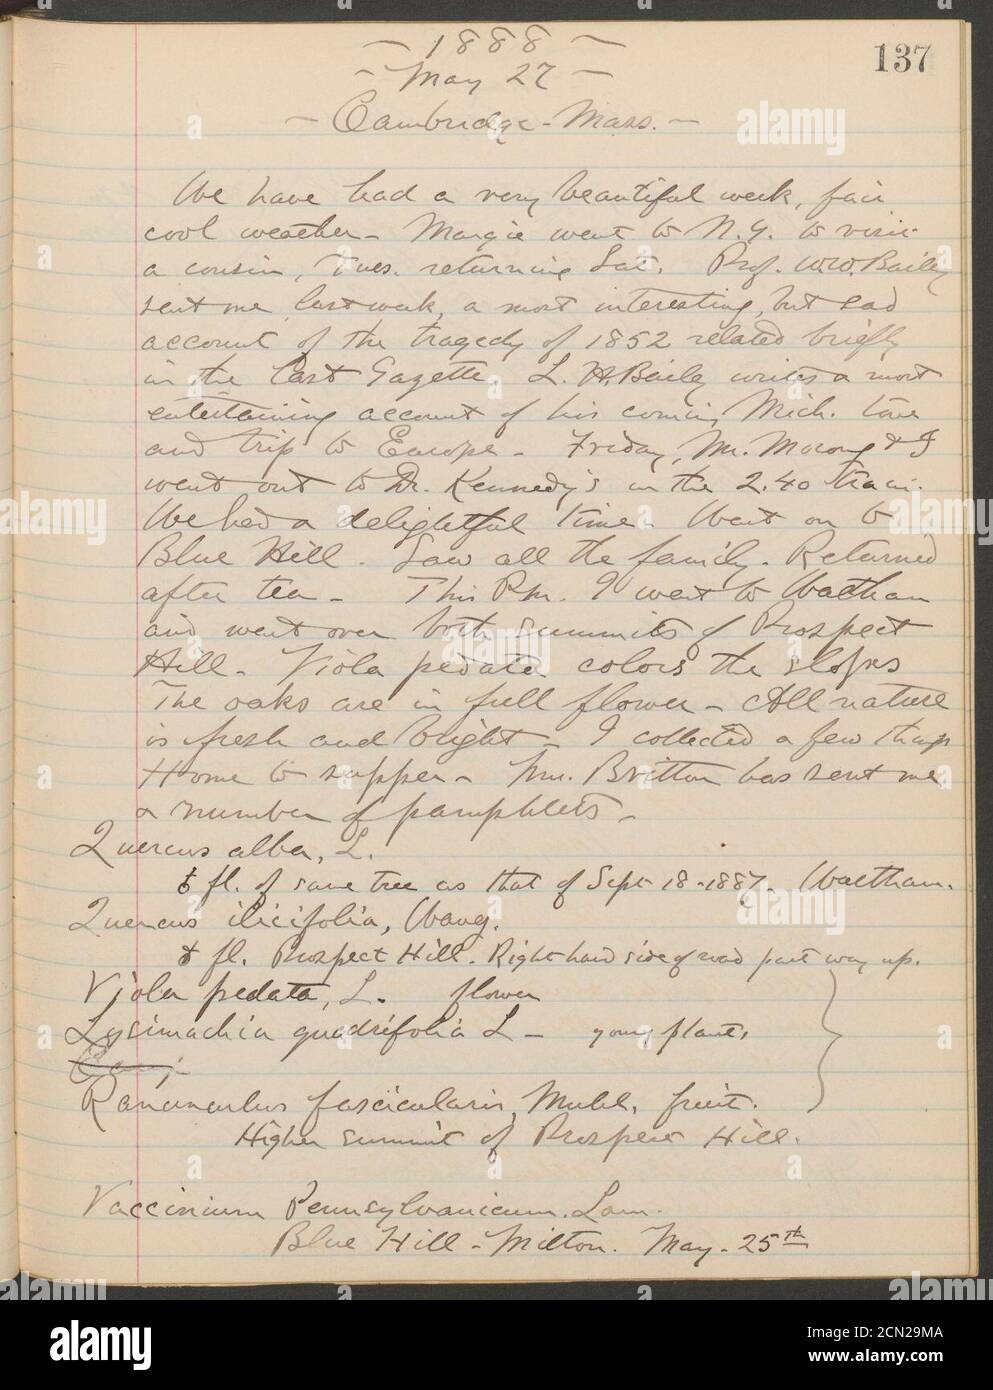 137
— 1888 —
— May 27 —
— Cambridge - Mass. —
We have had a very beautiful week, fair
cool weather - Margie went to N.Y. to visit
a cousin, Tues. returning Sat. Prof. W.W. Bailey
sent me last week, a most interesting, but sad
account of the tragedy of 1852 related briefly
in the Bot. Gazette. L. H. Bailey writes a most
entertaining account of his coming Mich. tour
and trip to Europe - Friday, Mr. Morong & I
went out to Dr. Kennedy's in the 2.40 train.
We had a delightful time. Went on to
Blue Hill. Saw all the family. Returned
after tea - This Pm. I went to Waltham
and went over both summits of Prospect
Hill. Viola pedata colors the slopes
The oaks are in full flower - All nature
is fresh and bright - I collected a few things
Home to supper - Mr. Britton has sent me
a number of pamphlets -
Quercus alba, L.
fl. of same tree as that of Sept 18-1887. Waltham.
Quercus ilicifolia, Wang.
fl. Prospect Hill. Right hand side of road part way up.
Viola pedata, L. flower
Lysimachia quadrifolia L - young plant.
Ranunculus fascicularis, Muhl, fruit.
Higher summit of Prospect Hill.
Vaccinium Pennsylvanicum. Lam.
Blue Hill - Milton. May - 25th
alamy
alamy
alamy
a
alamy
Image ID: 2CN29MA
www.alamy.com